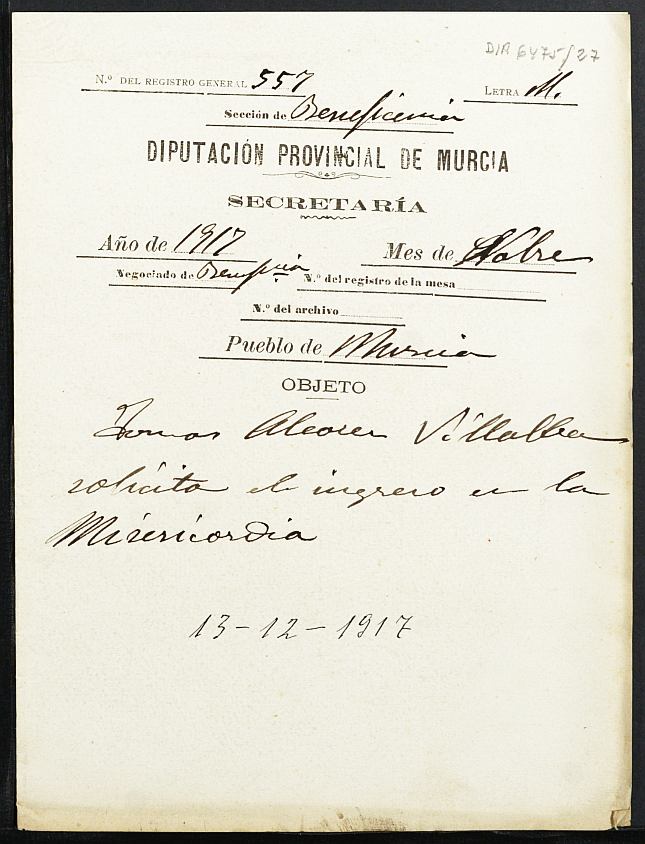 DIP 6475/27
N.º DEL REGISTRO GENERAL 557
LETRA M.
Sección de Beneficencia
DIPUTACIÓN PROVINCIAL DE MURCIA
SECRETARÍA
Año de 1917 Mes de Nobre
Negociado de Beneficencia N.º del registro de la mesa
N.º del archivo
Pueblo de Murcia
OBJETO
Tomas Villalba
solicita el ingreso en la
Misericordia
13-12-1917